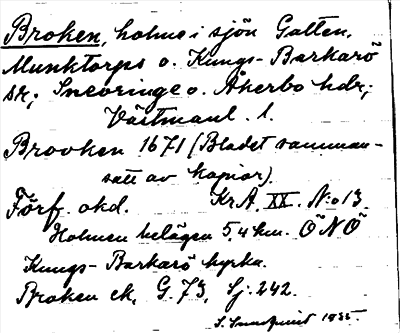 Broken, holme i sjön Gatten,
Munktorps o. Kungs-Barkarö
sr; Snevringe o. Åkerbo hdr;
Västmanl. l.
Brooken 1671 (Bladet samman-
satt av kopior).
Förf. okd. Kr.A. XX. N:o 13.
Holmen belägen 5,4 km. ÖNÖ
Kungs-Barkarö kyrka.
Broken ek. G. 73, Sj: 242.
1935.